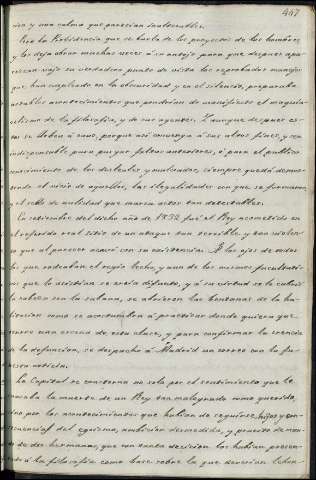 467
ria y una calma que parecian inalterables.
Pero la Probidencia que se burla de los proyectos de los hombres
y los deja obrar muchas veces á su antojo para que despues apa-
rezcan vajo su verdadero punto de vista los reprobados manejos
que han empleado en la obscuridad y en el silencio, preparaba
notables acontecimientos que pondrian de manifiesto el maquia-
velismo de la filosofia, y de sus agentes. Y aunque despues es-
tos se deban á unos, porque asi convenga á sus altos fines, y sea
indispensable para purgar faltas anteriores, ó para el público
conocimiento de los desleales y malvados, siempre quedó demos-
trado el vicio de aquellos, las ilegalidades con que se formaron
y el sello de nulidad que marca actos tan detestables.
En setiembre del dicho año de 1832 fué el Rey acometido en
el referido real sitio de un ataque tan terrible y tan violen-
to que al parecer acavó con su existencia. A los ojos de todos
los que rodeaban el regio lecho, y aun de los mismos facultati-
vos que le asistian se creia difunto, y á su virtud se le cubrió
la cabeza con la sabana, se abrieron las bentanas de la ha-
bitacion como se acostumbra á practicar donde quiera que
ocurre una escena de esta clase, y para confirmar la creencia
de la defuncion, se despachó á Madrid un correo con la fu-
nesta noticia.
La Capital se consterna no solo por el sentimiento que le
causaba la muerte de un Rey tan malogrado como querido,
sino por los acontecimientos que habian de seguirse, hijos y con-
secuencias del egoismo, ambicion desmedida, y procedimien-
tos de dos hermanas, que con tanta decision los habian presen-
tado á la filosofia como base sobre la que deverian leban-